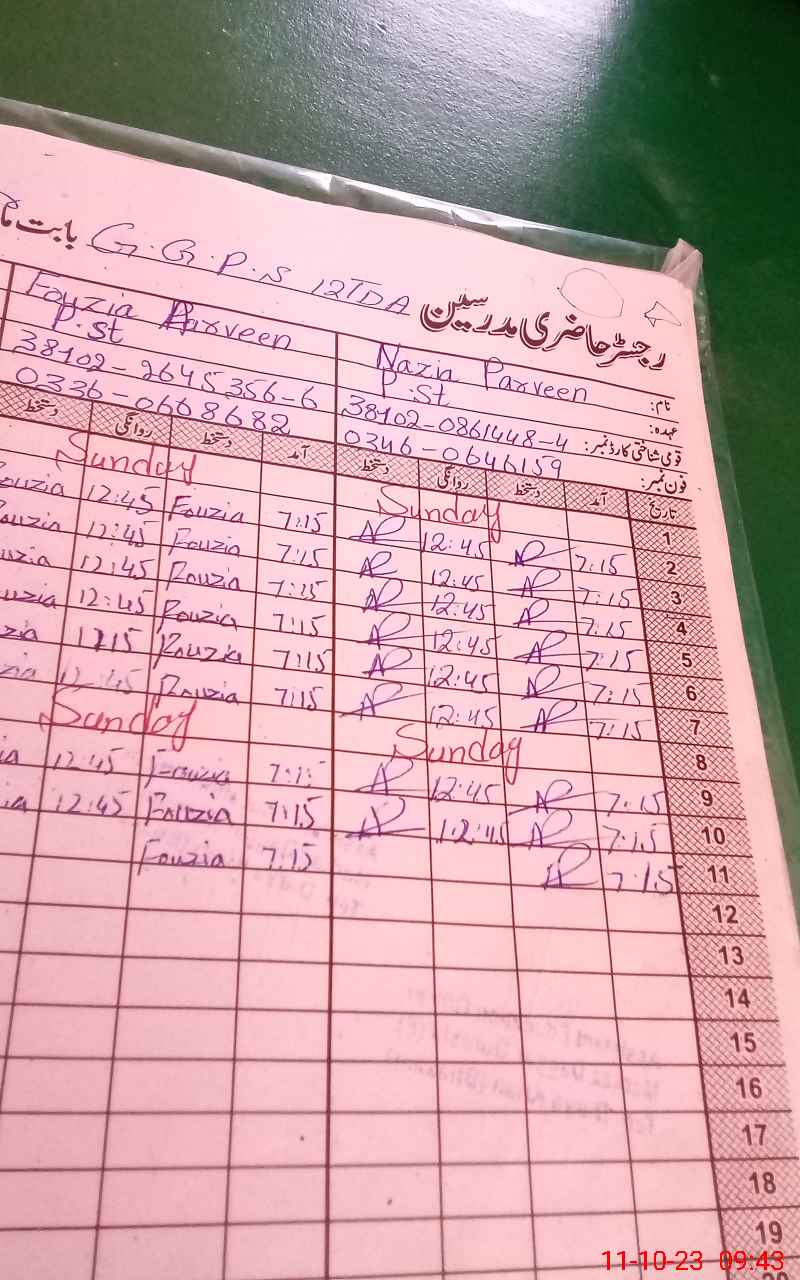 رجسٹر حاضری مدرسین G.G.P.S 12TDA بابت
نام: Nazia Parveen Fouzia Parveen
عہدہ: P.St P.St
قومی شناختی کارڈ نمبر: 38402-0861448-4 38402-2645356-6
فون نمبر: 0346-0646159 0336-0668682
تاریخ آمد دستخط روانگی دستخط آمد دستخط روانگی دستخط
1 Sunday Sunday
2 7:15 12:45 7:15 Fouzia 12:45 Fouzia
3 7:15 12:45 7:15 Fouzia 12:45
4 7:15 12:45 7:15 Fouzia 12:45
5 7:15 12:45 7:15 Fouzia 12:45
6 7:15 12:45 7:15 Fouzia
7 7:15 12:45 7:15 Fouzia 12:45
8 Sunday Sunday
9 7:15 12:45 7:15 Fouzia 12:45
10 7:15 12:45 7:15 Fouzia 12:45
11 7:15 7:15 Fouzia
12
13
14
15
16
17
18
19
11-10-23 09:43